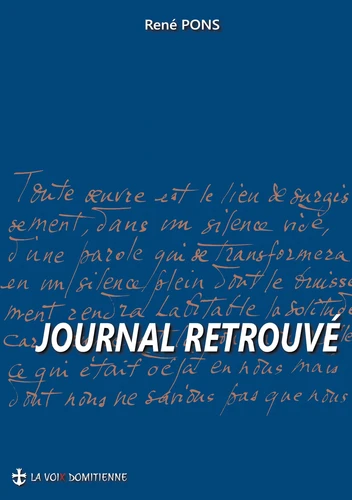 René PONS
Toute œuvre est le lieu de surgis
sement, dans un silence vide,
d'une parole qui se transformera
en un silence plein dont le bruisse
ment rendra habitable la solitude
car
JOURNAL RETROUVÉ
ce qui était déjà en nous mais
dont nous ne savions pas que nous
LA VOIX DOMITIENNE